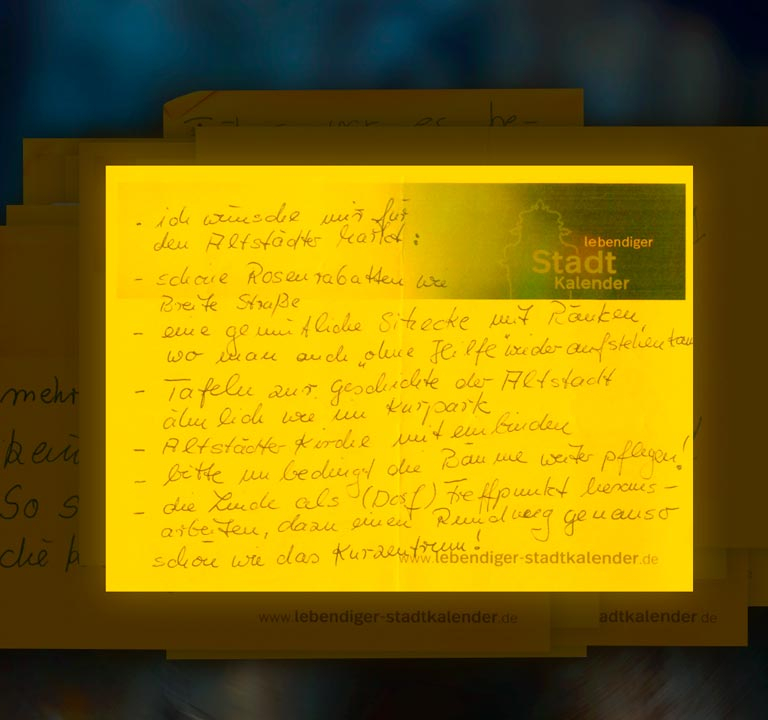 Früher war es be-
lebendiger
Stadt
Kalender
- ich wünsche mir für
den Altstädter Markt:
- schöne Rosenrabatten wie
Breite Straße
- eine gemütliche Sitzecke mit Bänken,
wo man auch "ohne Hilfe" wieder aufstehen kann
- Tafeln zur Geschichte der Altstadt
ähnlich wie im Kurpark
- Altstädter Kirche mit einbinden
- bitte unbedingt die Bäume weiter pflegen!
- die Linde als (Dorf) Treffpunkt heraus-
arbeiten, dazu einen Rundweg genauso
schön wie das Kurzentrum!
www.lebendiger-stadtkalender.de
mehr
So s
die
www.lebendiger-stadtkalender.de
adtkalender.de